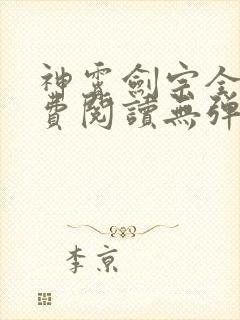 神霄劍宗全
費閱讀無彈
李京